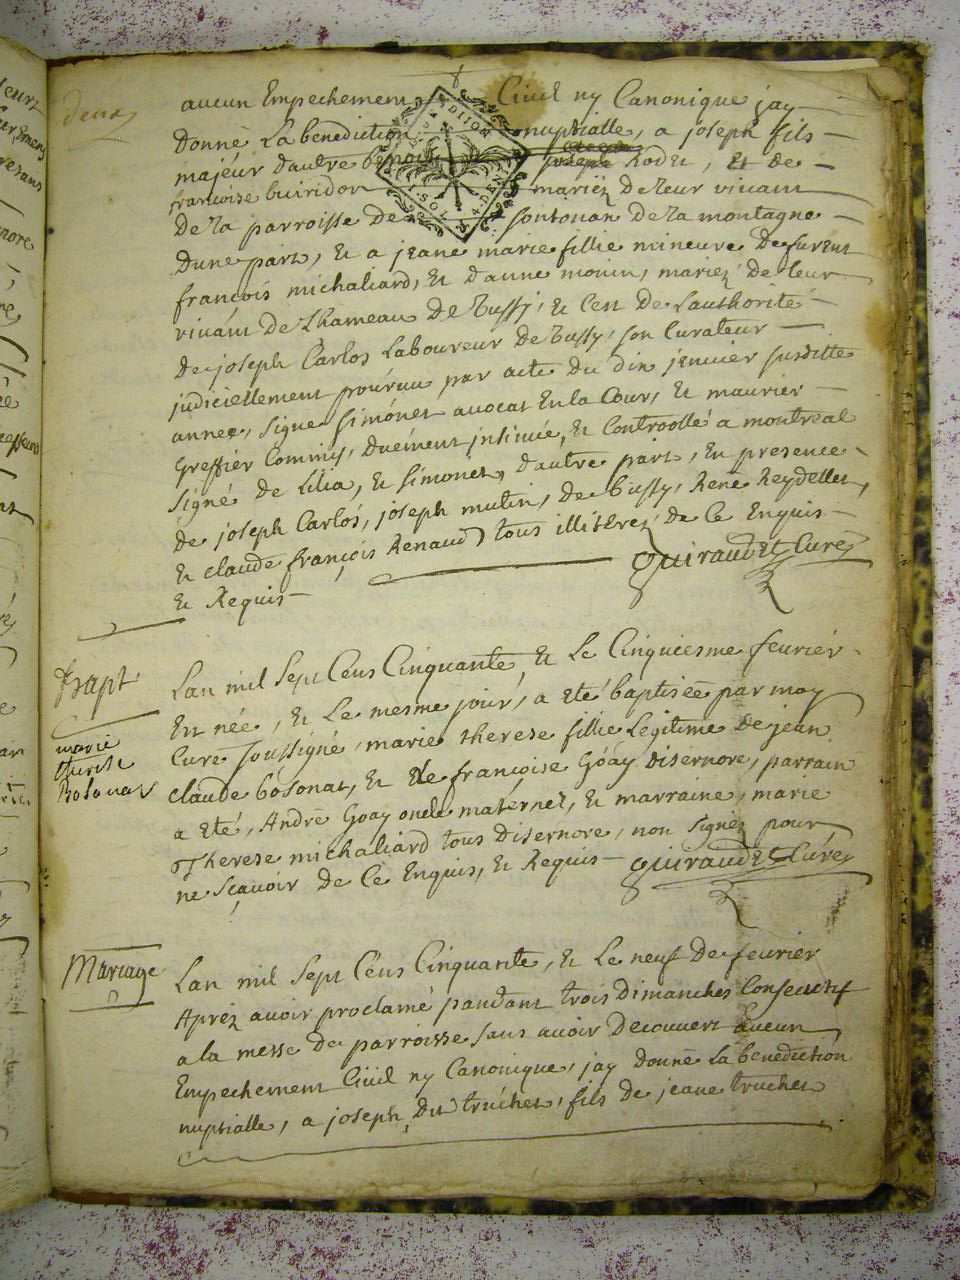 deux
aucun Empechement Civil ny Canonique jay
Donné La benediction nuptialle, a joseph fils
majeur dautre benoit joseph Rodet, Et de
françoise buiridon mariéz De leur vivant
de la parroisse de sontonan De la montagne
Dune part, Et a jeane marie fillie mineure De furent
francois michaliard, Et Danne monin, mariez de leur
vivant de Lhameau de bussy, Et C'est de Lauthorité
de joseph Carlos Laboureur de bussy, son Curateur
judiciellement pouruu par acte du dix jenvier susditte
annee, signé Simonet avocat En la Cour, Et maurier
Greffier Commis, duement insinué, Et Controollé a montreal
signé de Lilia, Et Simonet, d'autre part, En presence
de joseph Carlos, joseph mutin, de bussy, René Reydellet,
Et claude françois Renaud tous illitérez de Ce Enquis
Et Requis Guiraudet Curé
Bapt
marie
therese
Bosonat
Lan mil Sept Cens Cinquante, Et Le Cinquiesme feurier
Est née, Et Le mesme jour, a Eté baptisée par moy
Curé soussigné, marie therese fillie Legitime de jean
claude bosonat, Et de françoise Goay disernore, parrain
a Eté, André Goay oncle maternel, Et marraine, marie
Therese michaliard tous disernore, non signéz pour
ne sçavoir de Ce Enquis, Et Requis Guiraudet Curé
Mariage
Lan mil Sept Cens Cinquante, Et Le neuf De feurier
Apréz avoir proclamé pandant trois Dimanches Consecutif
a la messe de parroisse sans avoir Decouuert aucun
Empechement Civil ny Canonique, jay donné La benediction
nuptialle, a joseph Dit truchet, fils de jeane truchet